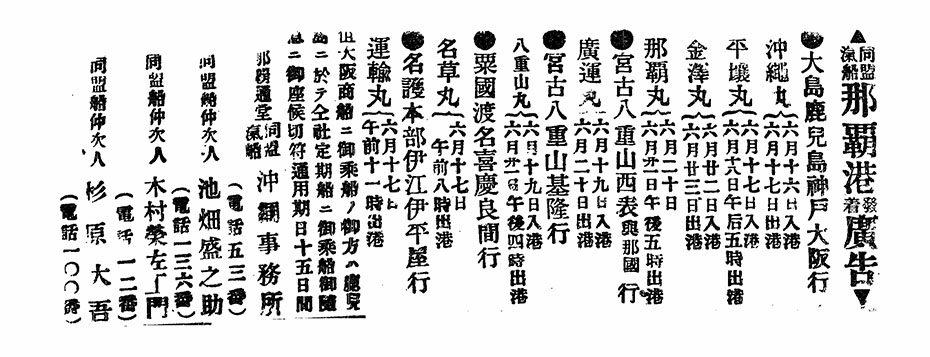 ▲同盟汽船那覇港發着廣告▼
●大島鹿兒島神戸大阪行
沖繩丸 六月十六日入港 六月十七日出港
平壤丸 六月十七日入港 六月十八日午后五時出港
金澤丸 六月廿二日入港 六月廿三日出港
那覇丸 六月二十日 六月廿一日午後五時出港
●宮古八重山西表與那國行
廣運丸 六月十九日入港 六月二十日出港
●宮古八重山基隆行
八重山丸 六月十九日入港 六月廿一日午後四時出港
●粟國渡名喜慶良間行
名草丸 六月十七日 午前八時出港
●名護本部伊江伊平屋行
運輸丸 六月十七日 午前十一時出港
但大阪商船ニ御乗船ノ御方ハ鹿兒
島ニ於テ仝社定期船ニ御乗船御隨
意ニ御座候切符通用期日十五日間
那覇通堂 同盟汽船 沖繩事務所
(電話五三番)
同盟船仲次人 池畑盛之助
(電話一三六番)
同盟船仲次人 木村榮左門
(電話一二番)
同盟船仲次人 杉原大吾
(電話一〇〇番)